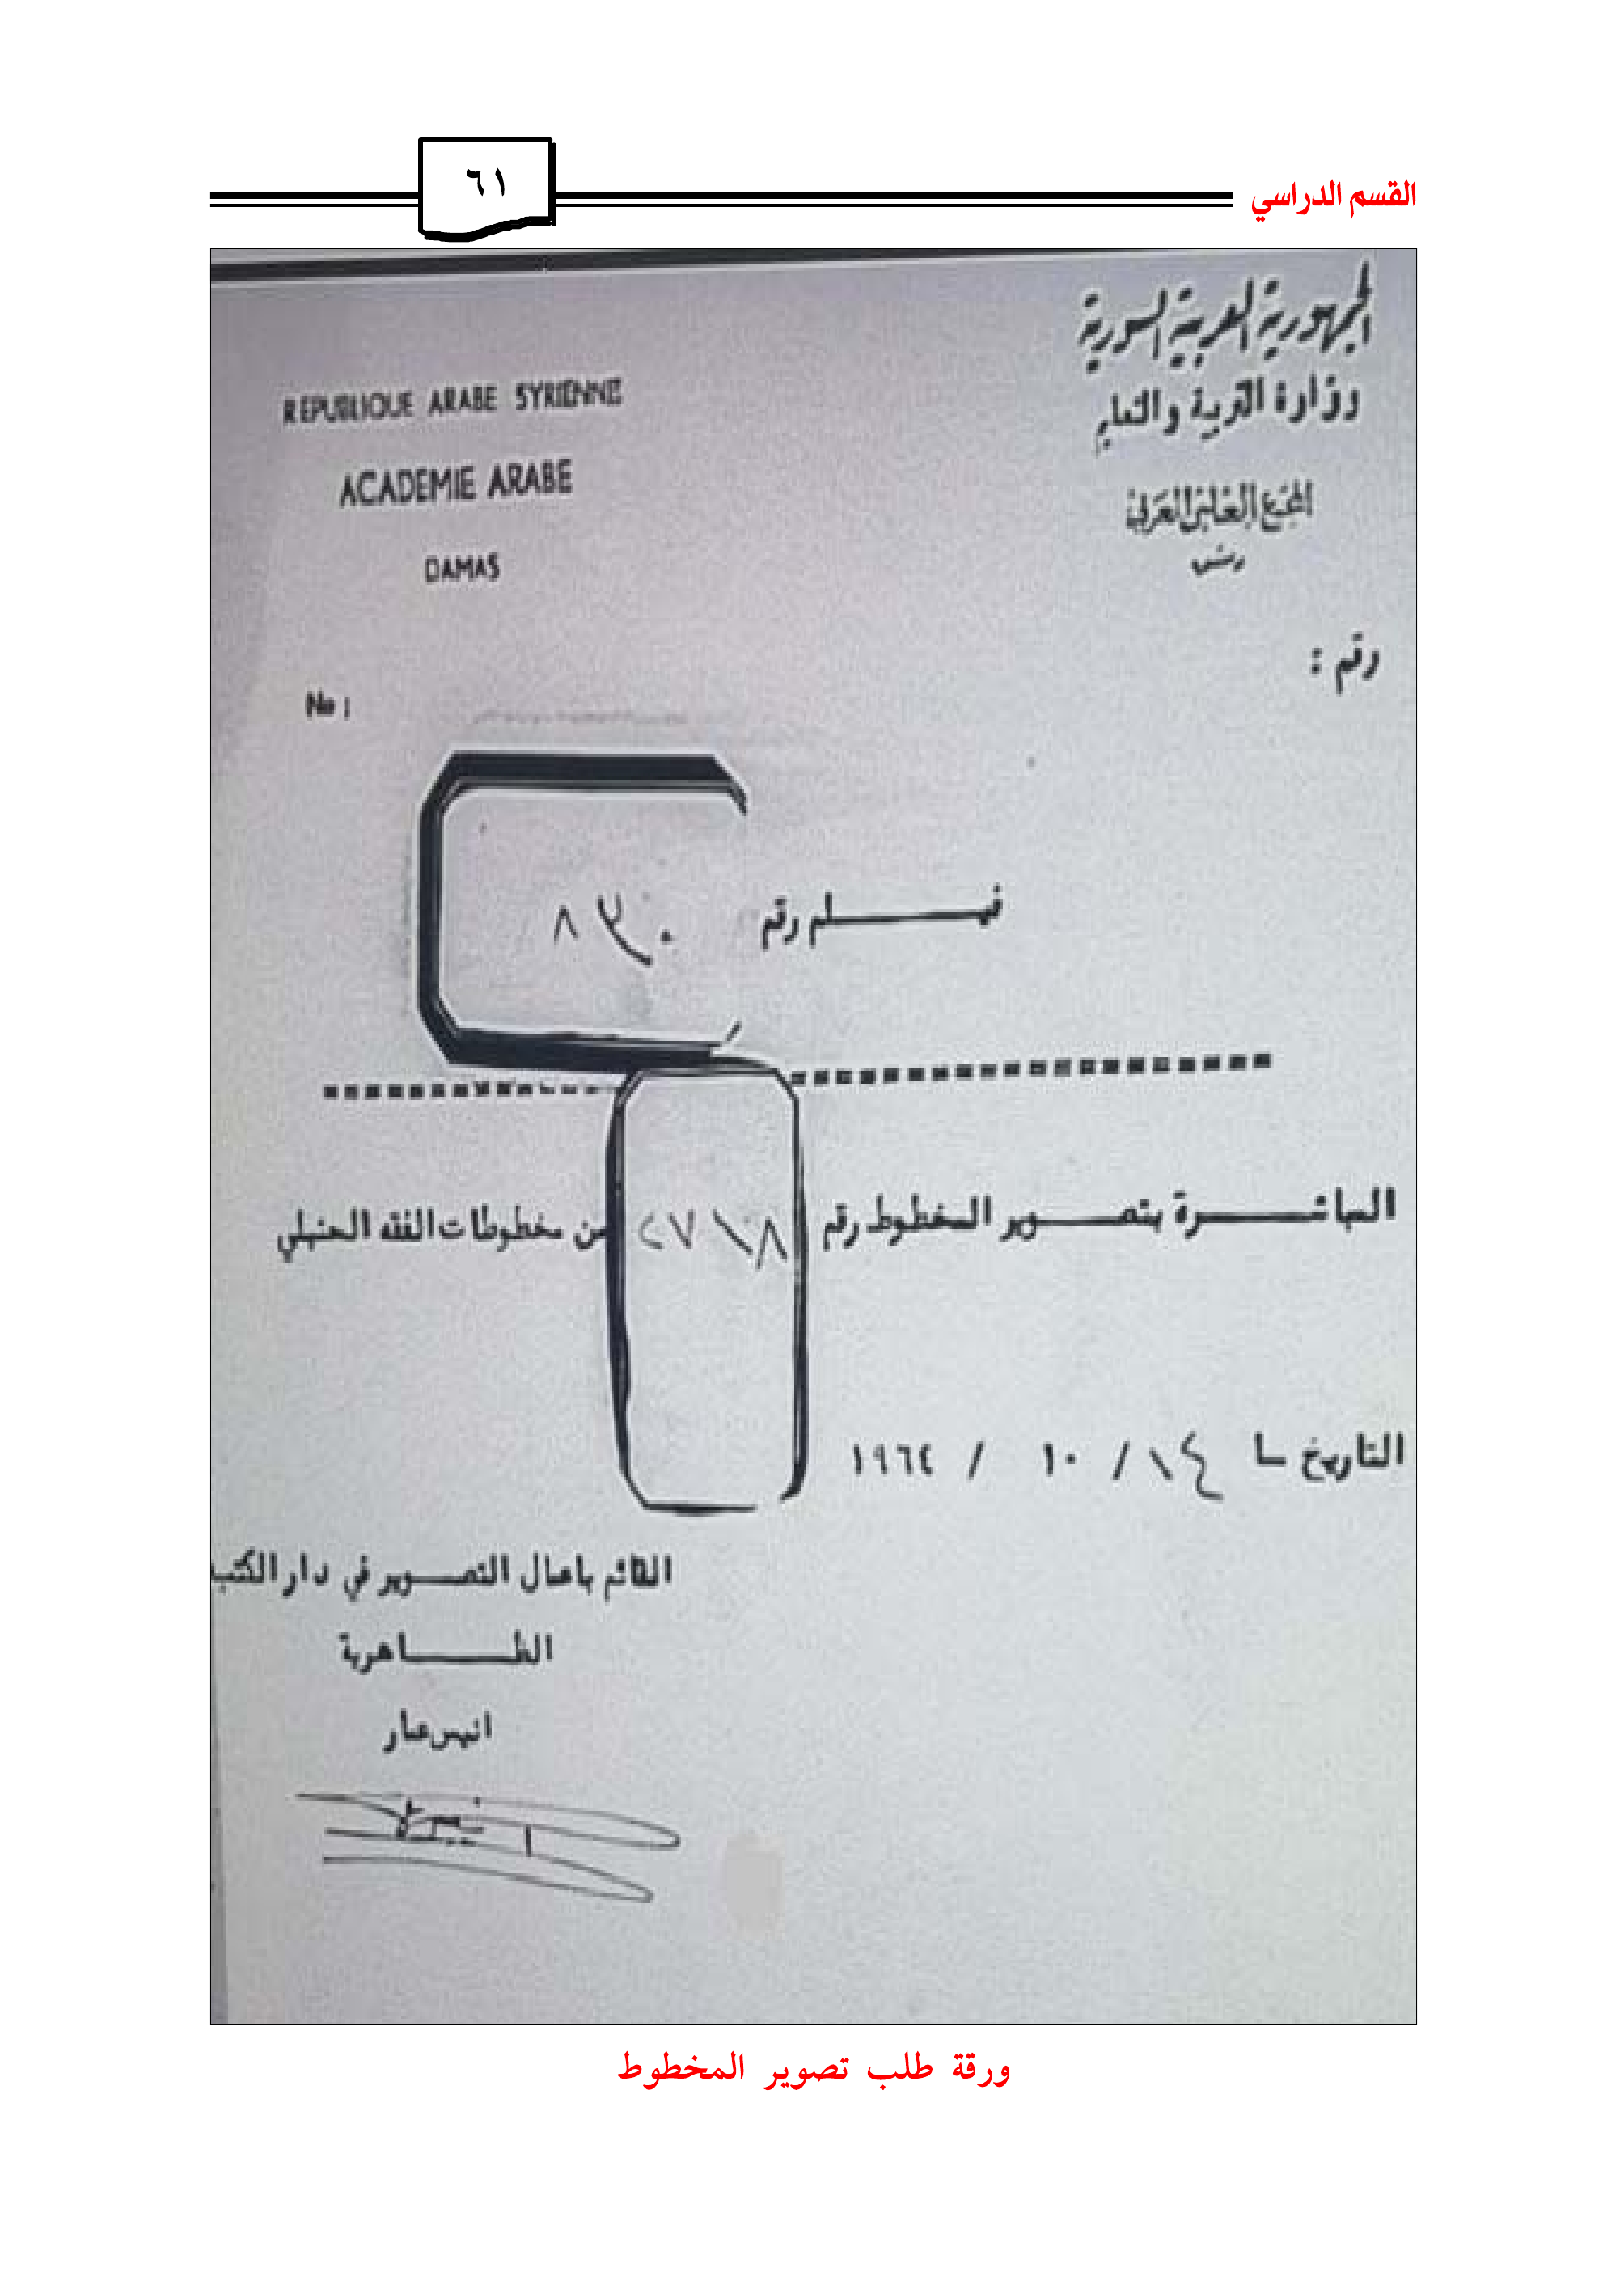 القسم الدراسي
٦١
الجمهورية العربية السورية
وزارة التربية والتعليم
المجمع العلمي العربي
دمشق
REPUBLIQUE ARABE SYRIENNE
ACADEMIE ARABE
DAMAS
رقم :
No :
فيلم رقم
المباشرة بتصوير المخطوط رقم ٢٧١٨ من مخطوطات الفقه الحنبلي
التاريخ ١٤ / ١٠ / ١٩٦٤
القائم باعمال التصوير في دار الكتب
الظاهرية
انيس عمار
ورقة طلب تصوير المخطوط